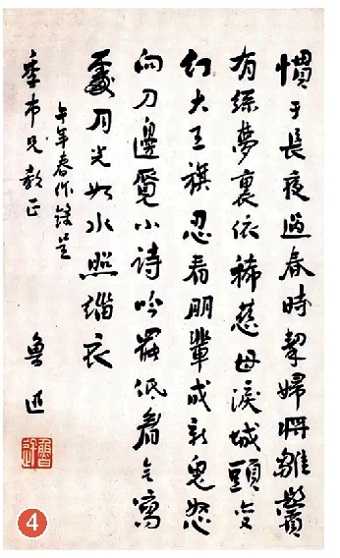 慣于長夜過春時挈婦將雛鬢
有絲夢裏依稀慈母淚城頭變
幻大王旗忍看朋輩成新鬼怒
向刀邊覓小詩吟罷低眉無寫
處月光如水照緇衣
午年春作錄呈
季市兄教正
魯迅
魯迅
4